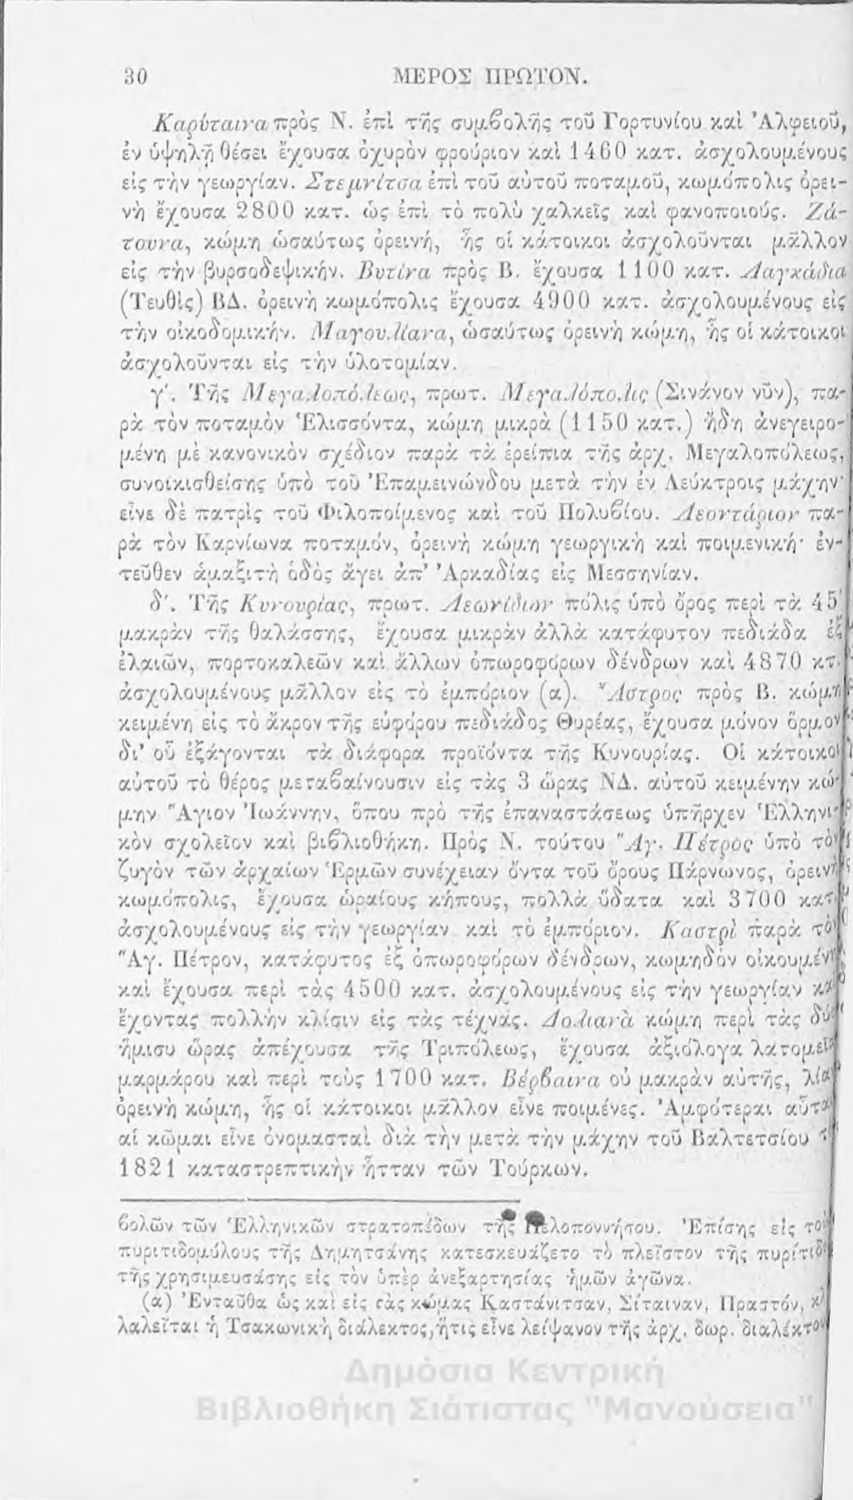 30 ΜΕΡΟΣ ΠΡΩΤΟΝ.
Καρύταινα πρὸς Ν. ἐπὶ τῆς συμβολῆς τοῦ Γορτυνίου καὶ Ἀλφειοῦ,
ἐν ὑψηλῇ θέσει ἔχουσα ὀχυρὸν φρούριον καὶ 1460 κατ. ἀσχολουμένους
εἰς τὴν γεωργίαν. Στεμνίτσα ἐπὶ τοῦ αὐτοῦ ποταμοῦ, κωμόπολις ὀρει-
νὴ ἔχουσα 2800 κατ. ὡς ἐπὶ τὸ πολὺ χαλκεῖς καὶ φανοποιούς. Ζά-
τουνα, κώμη ὡσαύτως ὀρεινή, ἧς οἱ κάτοικοι ἀσχολοῦνται μᾶλλον
εἰς τὴν βυρσοδεψικήν. Βυτίνα πρὸς Β. ἔχουσα 1100 κατ. Λαγκάδια
(Τευθὶς) ΒΔ. ὀρεινὴ κωμόπολις ἔχουσα 4900 κατ. ἀσχολουμένους εἰς
τὴν οἰκοδομικήν. Μαγούλιανα, ὡσαύτως ὀρεινὴ κώμη, ἧς οἱ κάτοικοι
ἀσχολοῦνται εἰς τὴν ὑλοτομίαν.
γ΄. Τῆς Μεγαλοπόλεως, πρωτ. Μεγαλόπολις (Σινάνον νῦν), πα-
ρὰ τὸν ποταμὸν Ἑλισσόντα, κώμη μικρὰ (1150 κατ.) ἤδη ἀνεγειρο-
μένη μὲ κανονικὸν σχέδιον παρὰ τὰ ἐρείπια τῆς ἀρχ. Μεγαλοπόλεως,
συνοικισθείσης ὑπὸ τοῦ Ἐπαμεινώνδου μετὰ τὴν ἐν Λεύκτροις μάχην·
εἶνε δὲ πατρὶς τοῦ Φιλοποίμενος καὶ τοῦ Πολυβίου. Λεοντάριον πα-
ρὰ τὸν Καρνίωνα ποταμόν, ὀρεινὴ κώμη γεωργικὴ καὶ ποιμενική· ἐν-
τεῦθεν ἁμαξιτὴ ὁδὸς ἄγει ἀπ’ Ἀρκαδίας εἰς Μεσσηνίαν.
δ΄. Τῆς Κυνουρίας, πρωτ. Λεωνίδιον πόλις ὑπὸ ὄρος περὶ τὰ 45΄
μακρὰν τῆς θαλάσσης, ἔχουσα μικρὰν ἀλλὰ κατάφυτον πεδιάδα ἐξ
ἐλαιῶν, πορτοκαλεῶν καὶ ἄλλων ὀπωροφόρων δένδρων καὶ 4870 κτ.
ἀσχολουμένους μᾶλλον εἰς τὸ ἐμπόριον (α). Ἄστρος πρὸς Β. κώμη
κειμένη εἰς τὸ ἄκρον τῆς εὐφόρου πεδιάδος Θυρέας, ἔχουσα μόνον ὅρμον
δι’ οὗ ἐξάγονται τὰ διάφορα προϊόντα τῆς Κυνουρίας. Οἱ κάτοικοι
αὐτοῦ τὸ θέρος μεταβαίνουσιν εἰς τὰς 3 ὥρας ΝΔ. αὐτοῦ κειμένην κώ-
μην Ἅγιον Ἰωάννην, ὅπου πρὸ τῆς ἐπαναστάσεως ὑπῆρχεν Ἑλληνι-
κὸν σχολεῖον καὶ βιβλιοθήκη. Πρὸς Ν. τούτου Ἅγ. Πέτρος ὑπὸ τὸν
ζυγὸν τῶν ἀρχαίων Ἑρμῶν συνέχειαν ὄντα τοῦ ὄρους Πάρνωνος, ὀρεινὴ
κωμόπολις, ἔχουσα ὡραίους κήπους, πολλὰ ὕδατα καὶ 3700 κατ.
ἀσχολουμένους εἰς τὴν γεωργίαν καὶ τὸ ἐμπόριον. Καστρὶ παρὰ τὸν
Ἅγ. Πέτρον, κατάφυτος ἐξ ὀπωροφόρων δένδρων, κωμηδὸν οἰκουμένη
καὶ ἔχουσα περὶ τὰς 4500 κατ. ἀσχολουμένους εἰς τὴν γεωργίαν καὶ
ἔχοντας πολλὴν κλίσιν εἰς τὰς τέχνας. Δολιανὰ κώμη περὶ τὰς δύο
ἥμισυ ὥρας ἀπέχουσα τῆς Τριπόλεως, ἔχουσα ἀξιόλογα λατομεῖα
μαρμάρου καὶ περὶ τοὺς 1700 κατ. Βέρβαινα οὐ μακρὰν αὐτῆς, λίαν
ὀρεινὴ κώμη, ἧς οἱ κάτοικοι μᾶλλον εἶνε ποιμένες. Ἀμφότεραι αὗται
αἱ κῶμαι εἶνε ὀνομασταὶ διὰ τὴν μετὰ τὴν μάχην τοῦ Βαλτετσίου
1821 καταστρεπτικὴν ἧτταν τῶν Τούρκων.
βολῶν τῶν Ἑλληνικῶν στρατοπέδων τῆς Πελοποννήσου. Ἐπίσης εἰς τοὺς
πυριτιδομύλους τῆς Δημητσάνης κατεσκευάζετο τὸ πλεῖστον τῆς πυρίτιδος
τῆς χρησιμευσάσης εἰς τὸν ὑπὲρ ἀνεξαρτησίας ἡμῶν ἀγῶνα.
(α) Ἐνταῦθα ὡς καὶ εἰς τὰς κώμας Καστάνιτσαν, Σίταιναν, Πραστόν,
λαλεῖται ἡ Τσακωνικὴ διάλεκτος, ἥτις εἶνε λείψανον τῆς ἀρχ. δωρ. διαλέκτου
Δημόσια Κεντρική
Βιβλιοθήκη Σιάτιστας "Μανούσεια"